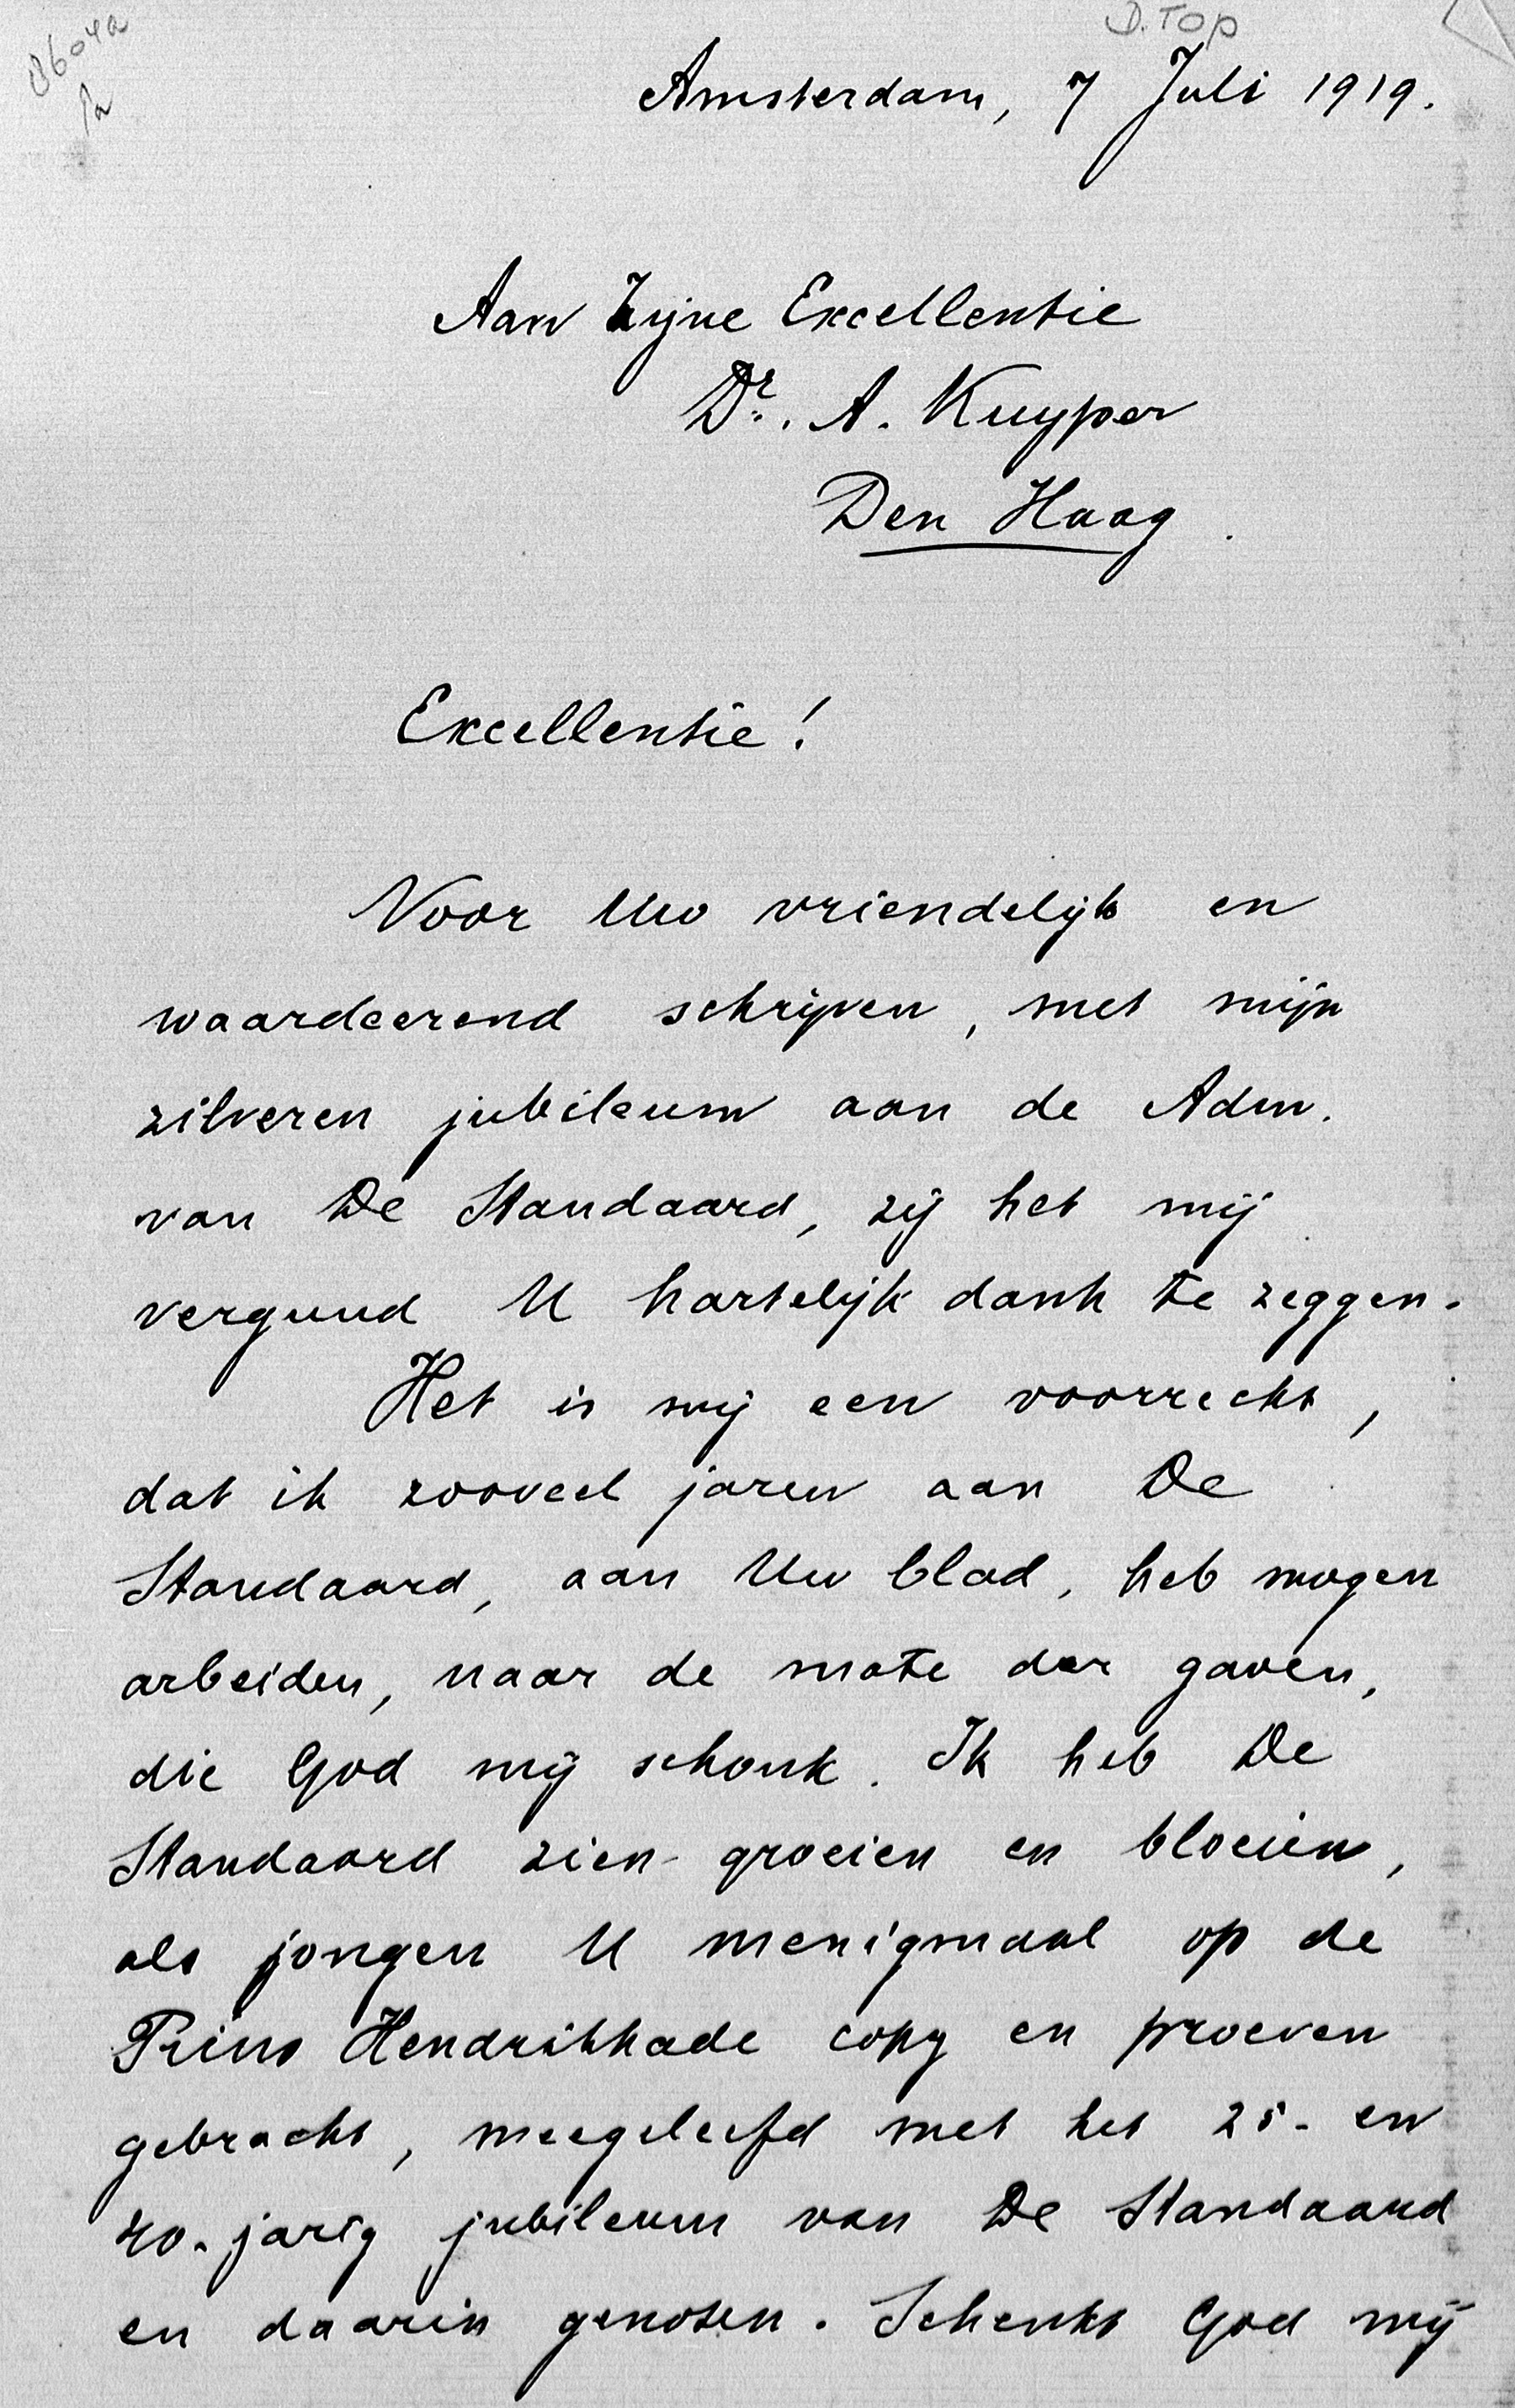 8604a
D. Top
Amsterdam, 7 Juli 1919.
Aan Zijne Excellentie
Dr. A. Kuyper
Den Haag.
Excellentie!
Voor Uw vriendelijk en
waardeerend schrijven, met mijn
zilveren jubileum aan de Adm.
van De Standaard, zij het mij
vergund U hartelijk dank te zeggen.
Het is mij een voorrecht,
dat ik zooveel jaren aan De
Standaard, aan Uw blad, heb mogen
arbeiden, naar de mate der gaven,
die God mij schonk. Ik heb De
Standaard zien groeien en bloeien,
als jongen U menigmaal op de
Prins Hendrikkade copy en proeven
gebracht, meegeleefd met het 25- en
40-jarig jubileum van De Standaard
en daarin genoten. Schenkt God mij